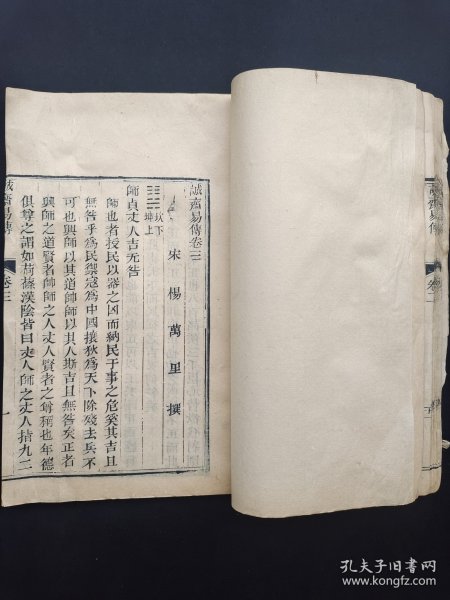 誠齋易傳卷三
宋 楊萬里 撰
䷆坎下
坤上
師貞丈人吉无咎
師也者授民以器之凶而納民于事之危奚其吉且
無咎乎為民禦寇為中國攘狄為天下除殘去兵不
可也興師以其道帥師以其人斯吉且無咎矣正者
興師之道賢者帥師之人丈人賢者之尊稱也年德
俱尊之謂如荷蓧漢陰皆曰丈人師之丈人指九二
誠齋易傳
卷三
一
誠齋易傳
卷二
孔夫子旧书网
www.kongfz.com